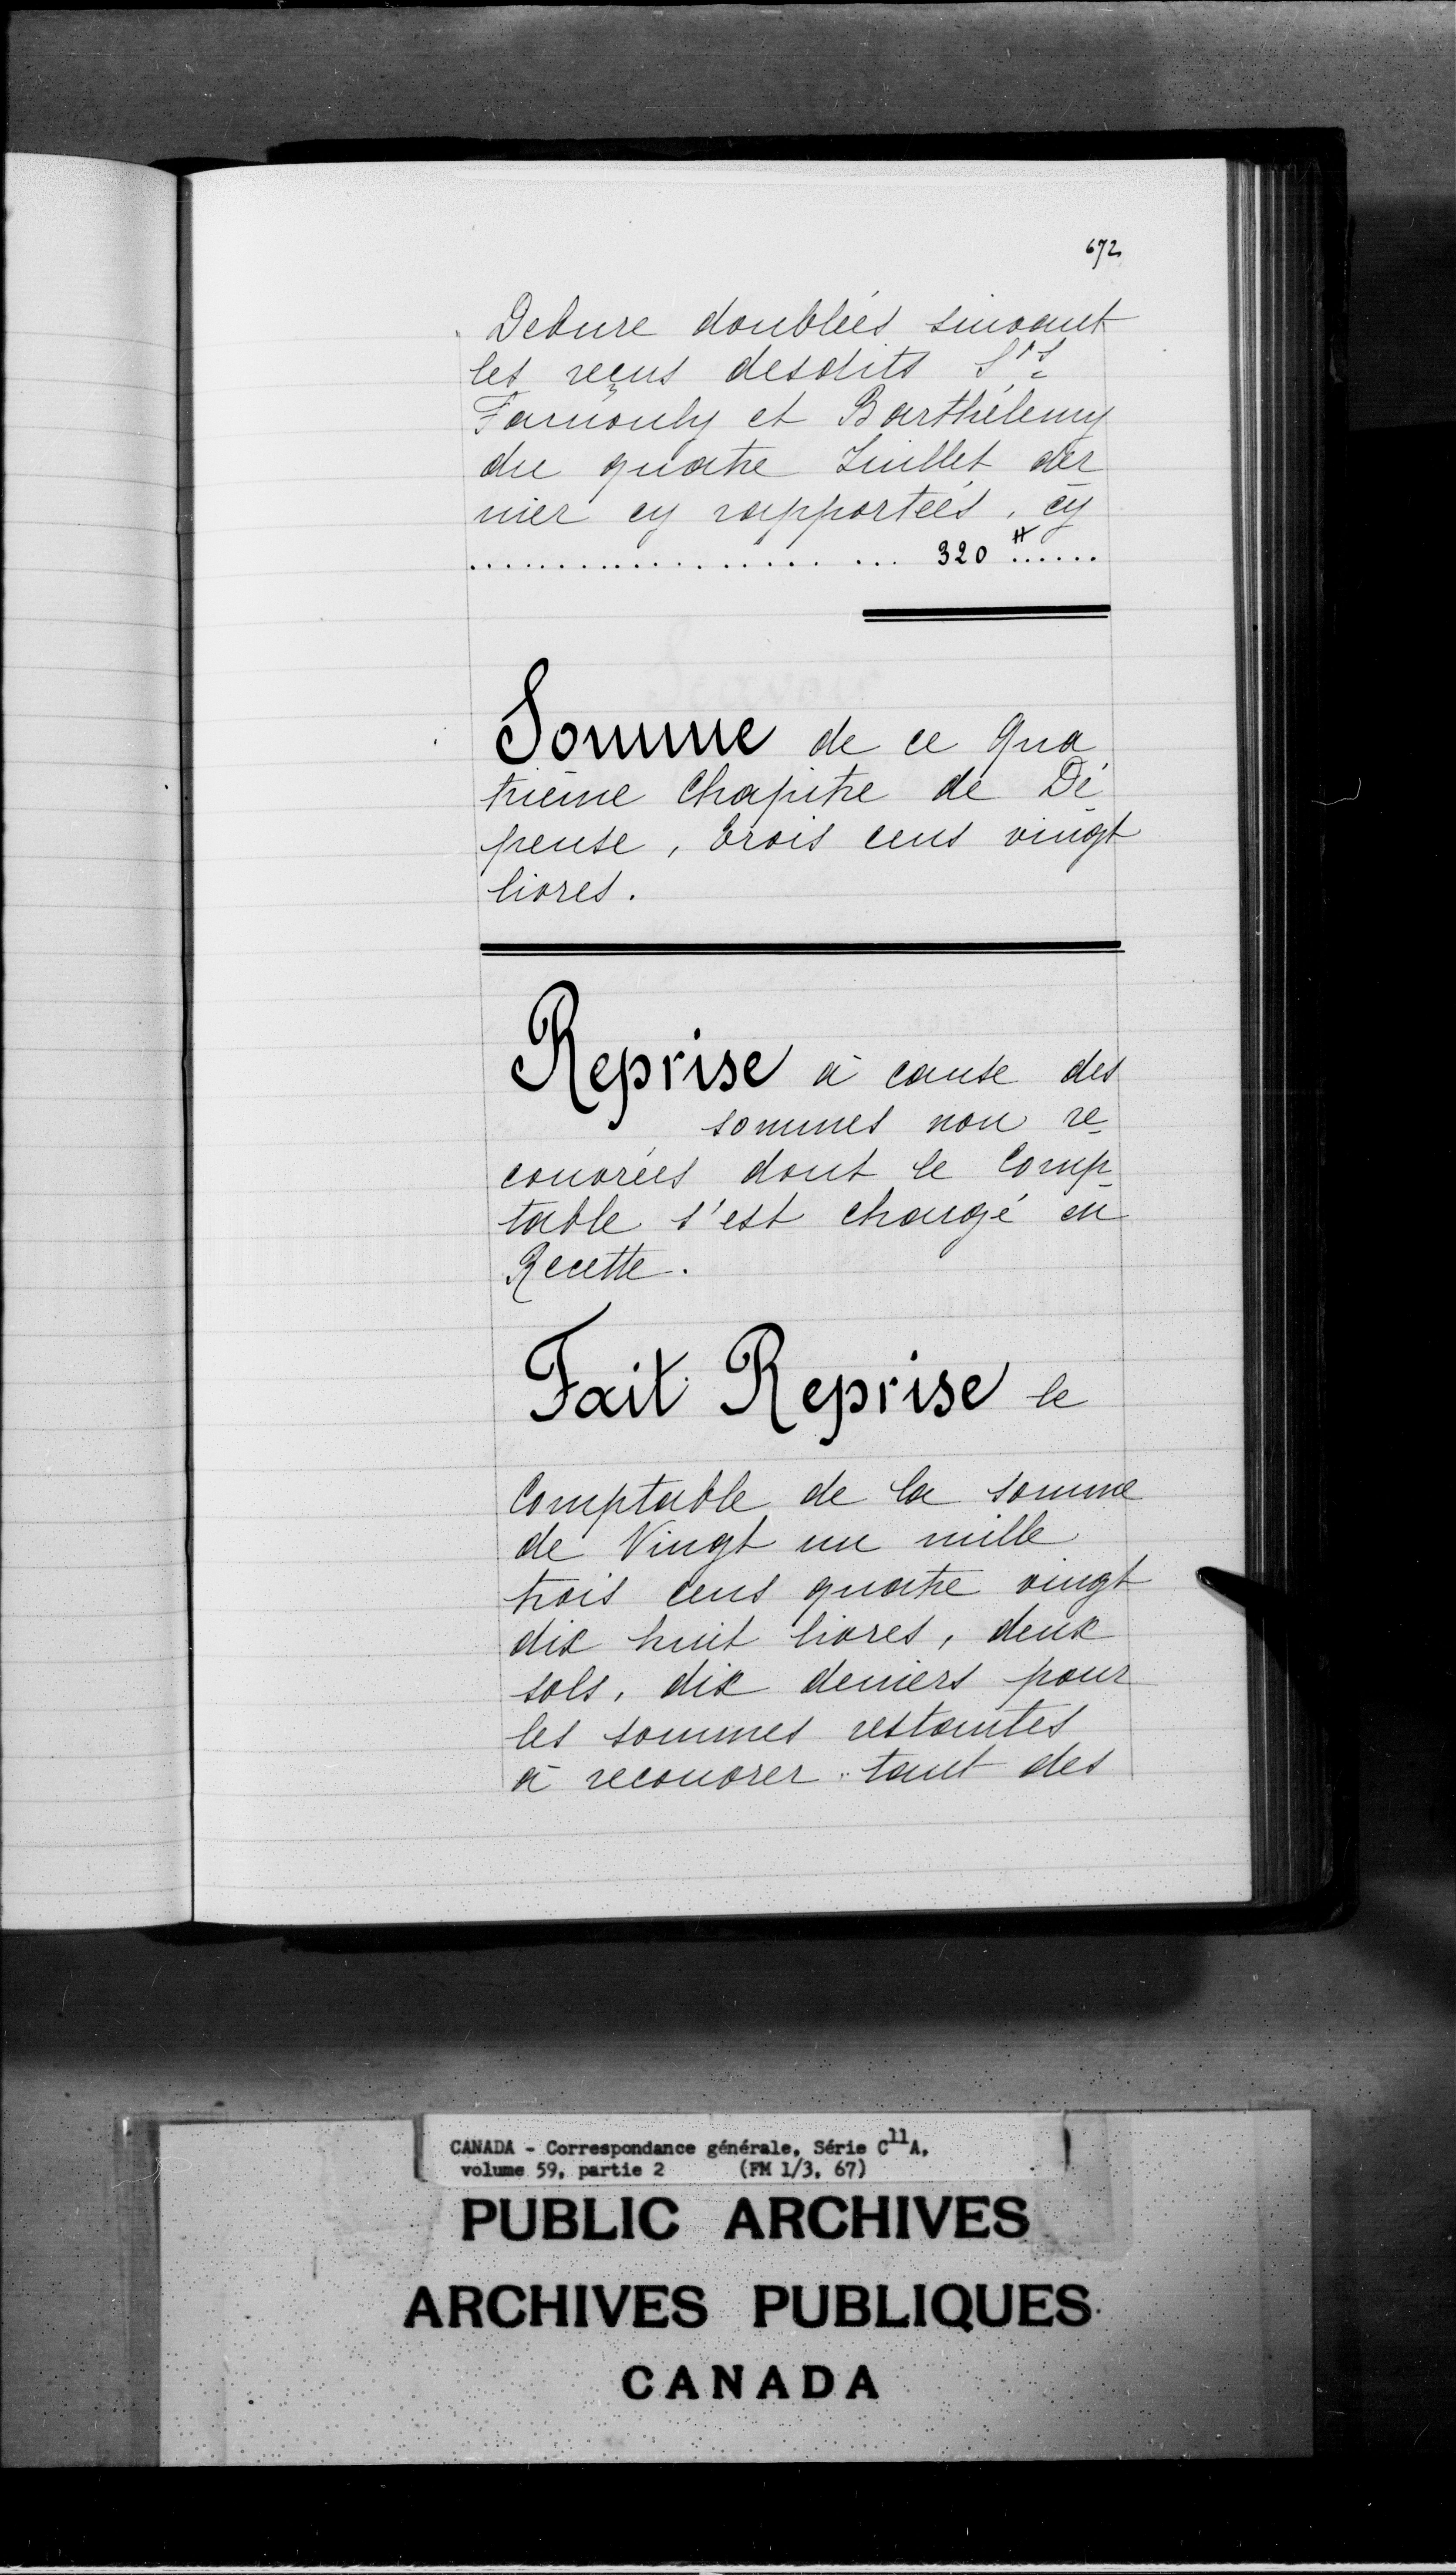 672
Debure doubléés suivant
les reçus desdits Srs
Farnouly et Barthélemy
du quatre Juillet der
nier cy rapportées, cy
........................ 320 # ......
Somme de ce Qua
trième Chapitre de Dé
pense, trois cens vingt
livres.
Reprise à cause des
sommes non re-
couvrées dont le Comp-
table s'est chargé en
Recette.
Fait Reprise le
Comptable de la somme
de Vingt un mille
trois cens quatre vingt
dix huit livres, deux
sols, dix deniers pour
les sommes restantes
à recouvrer tant des
CANADA - Correspondance générale, Série C11A,
volume 59, partie 2 (FM 1/3, 67)
PUBLIC ARCHIVES
ARCHIVES PUBLIQUES
CANADA